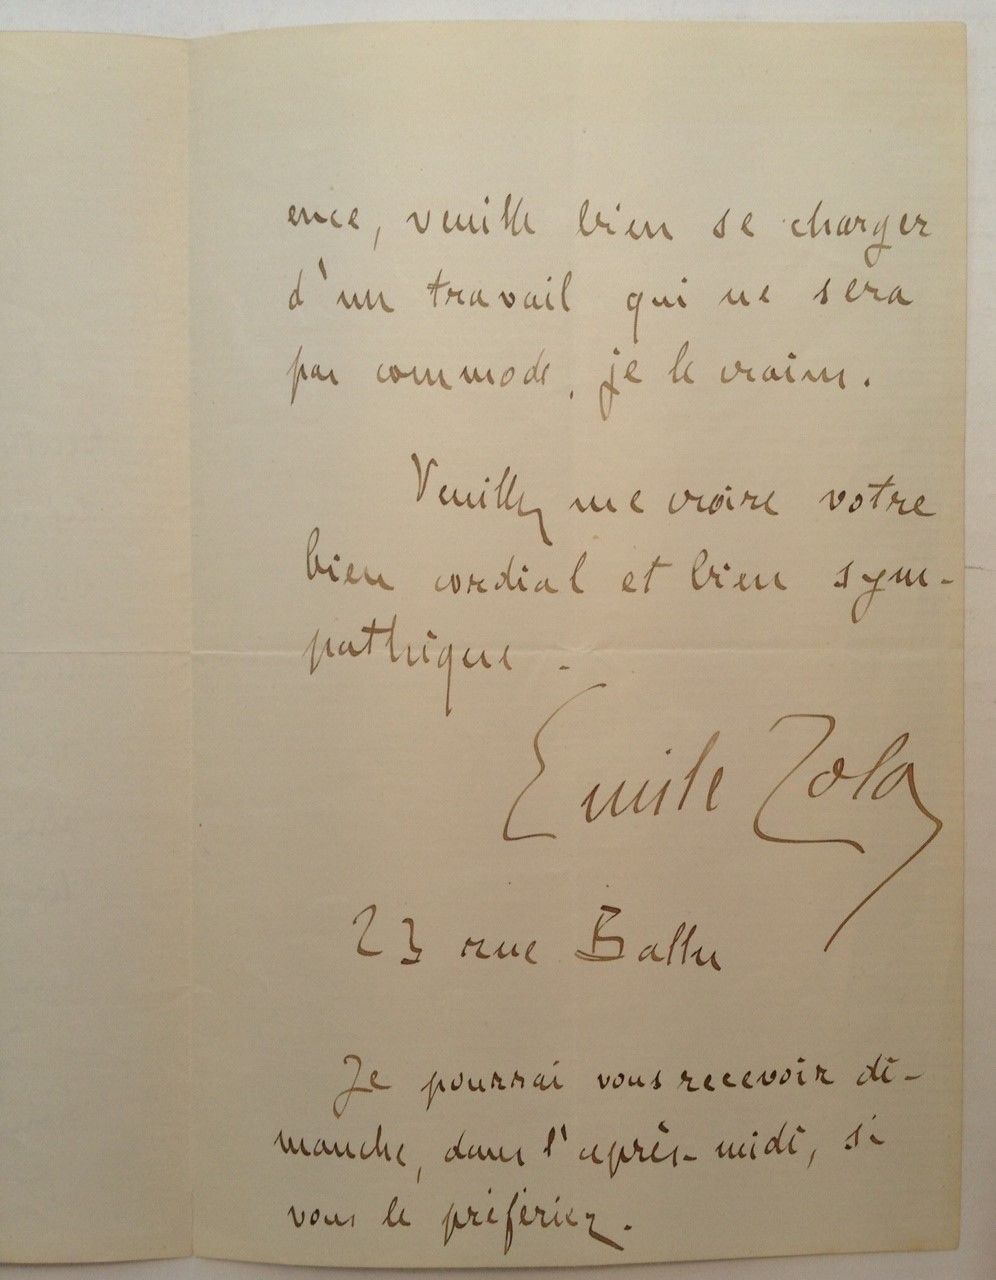 ence, veuille bien se charger
d'un travail qui ne sera
pas commode, je le crains.
Veuillez me croire votre
bien cordial et bien sym-
pathique.
Emile Zola
23 rue Ballu
Je pourrai vous recevoir di-
manche, dans l'après-midi, si
vous le préfériez.